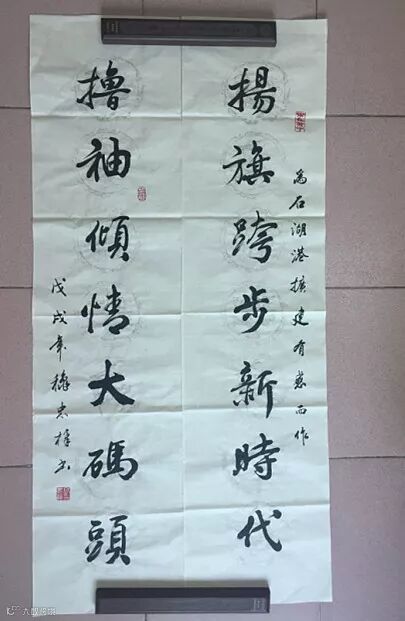 為石湖港擴建有感而作
揚旗跨步新時代
擼袖傾情大碼頭
戊戌年穆忠祥书